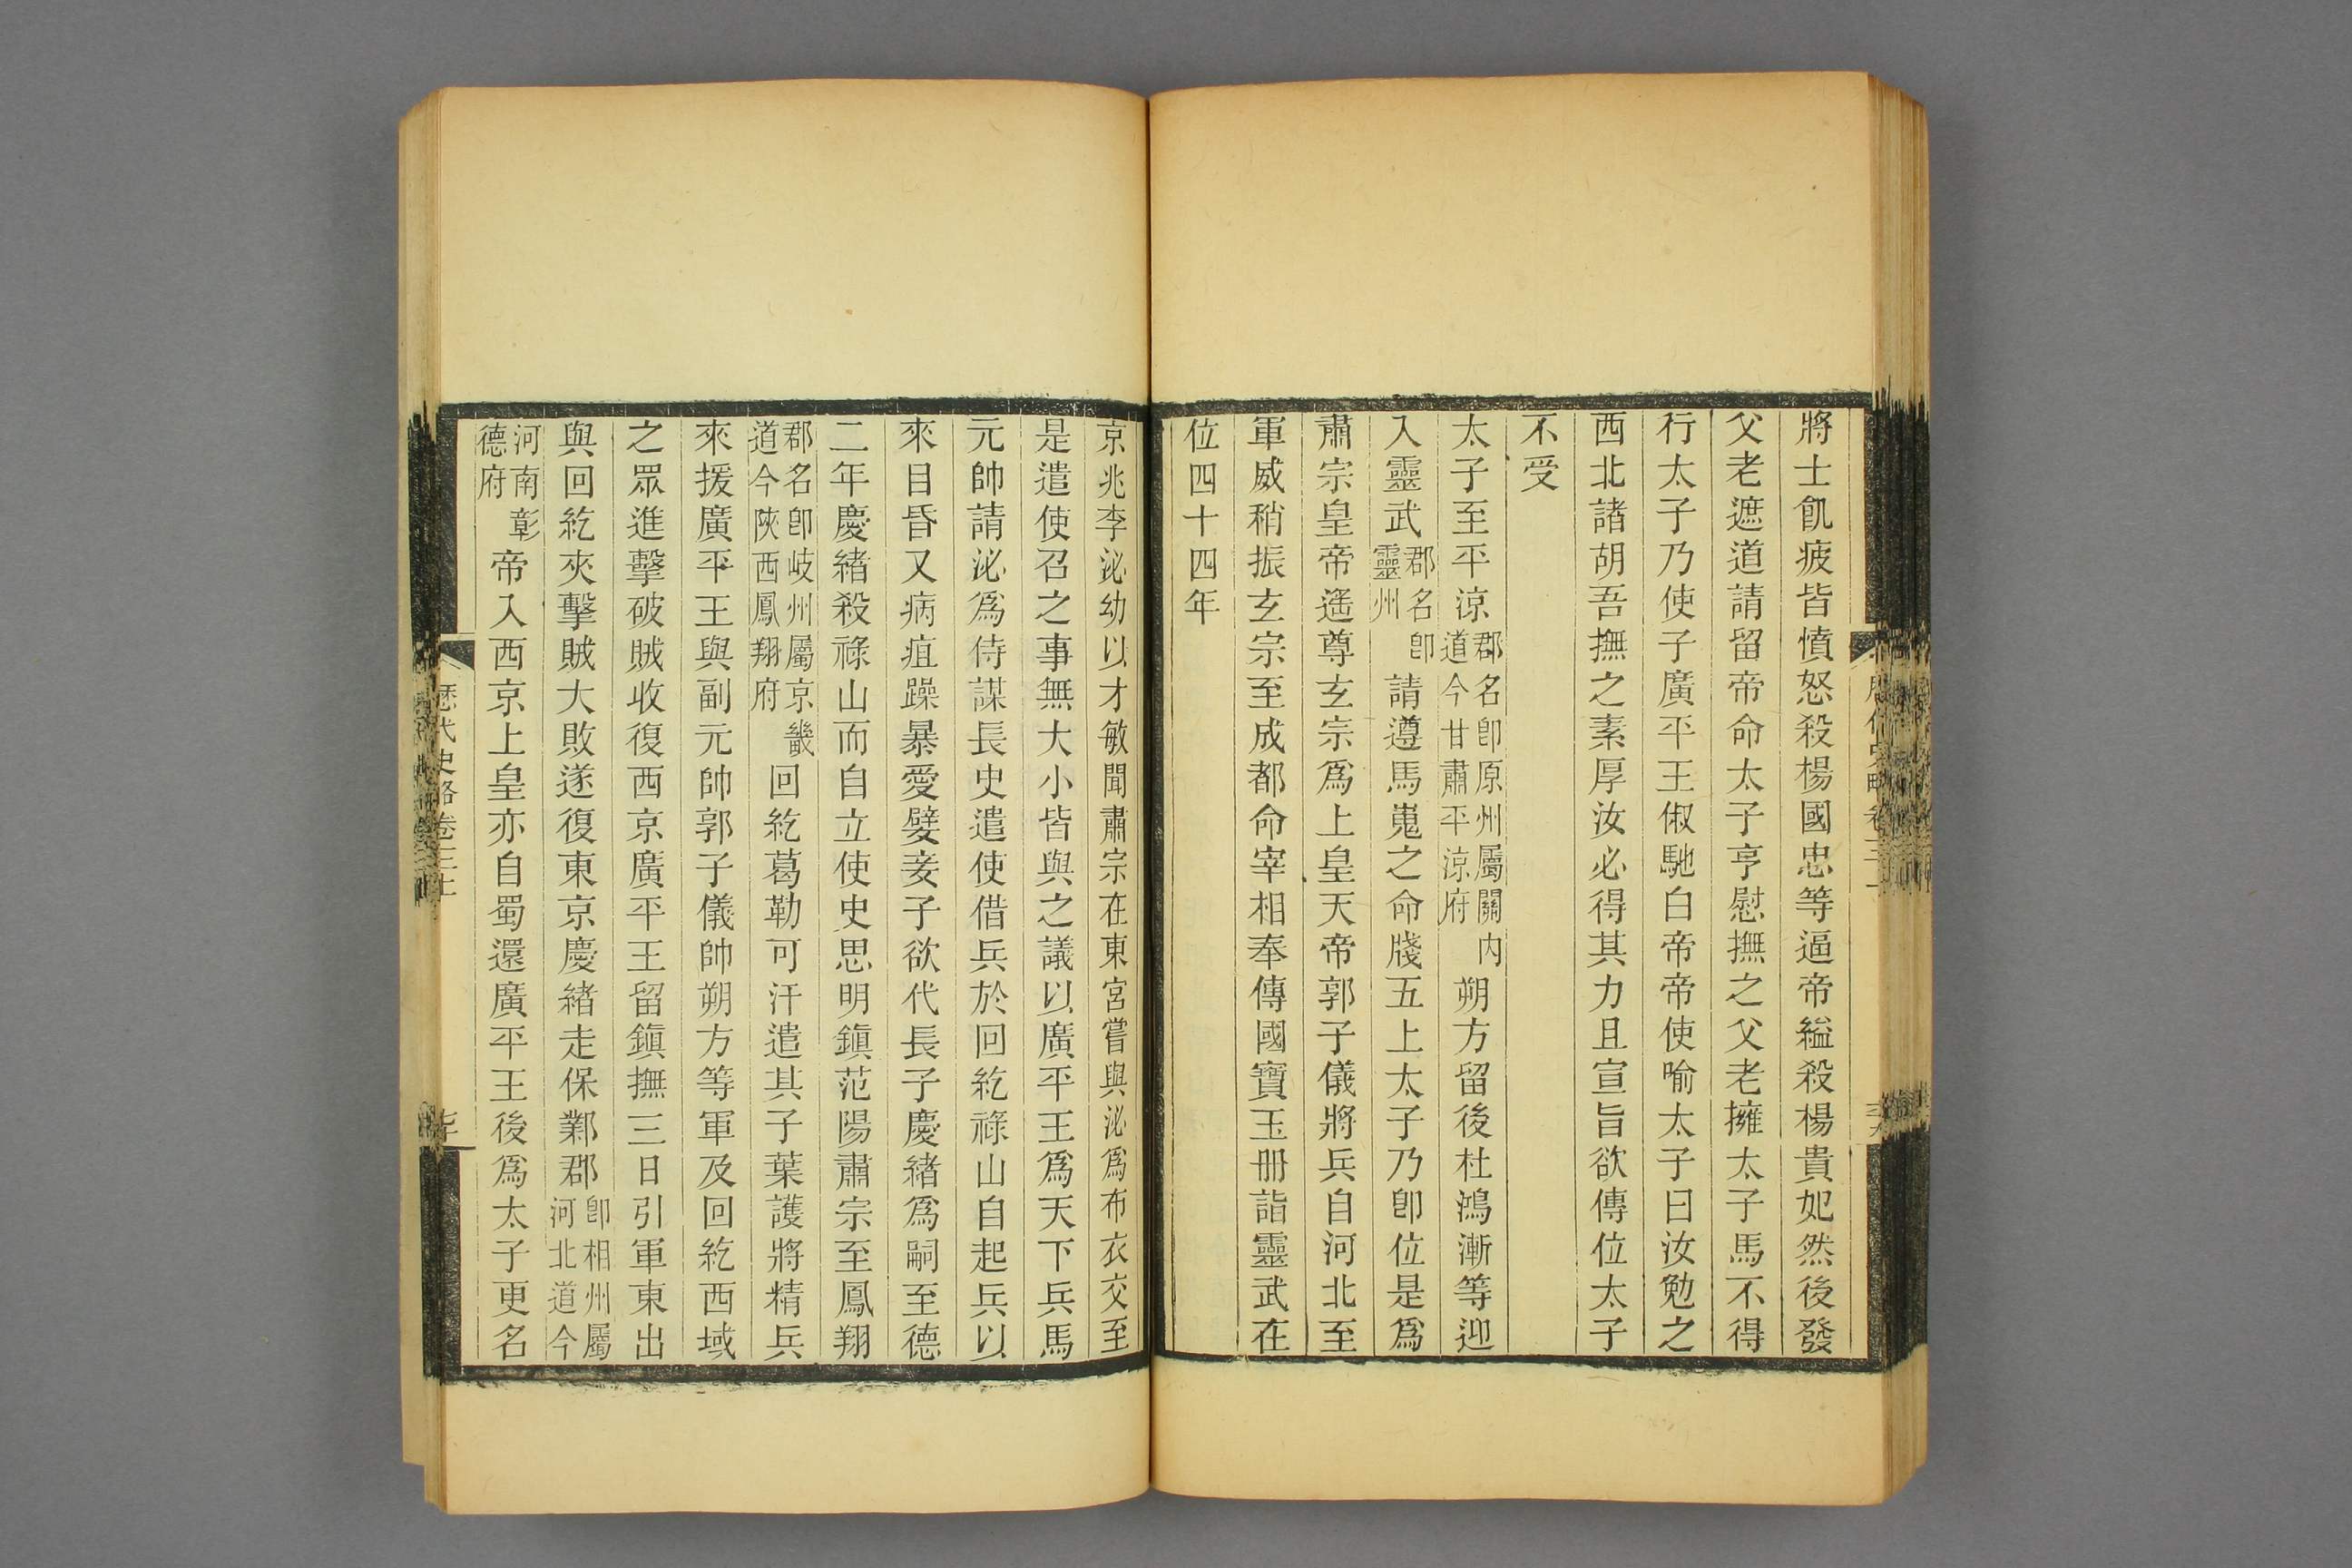 將士飢疲皆憤怒殺楊國忠等逼帝縊殺楊貴妃然後發
父老遮道請留帝命太子亨慰撫之父老擁太子馬不得
行太子乃使子廣平王俶馳白帝帝使喻太子曰汝勉之
西北諸胡吾撫之素厚汝必得其力且宣旨欲傳位太子
不受
太子至平涼郡名卽原州屬關內道今甘肅平涼府朔方留後杜鴻漸等迎
入靈武郡名卽靈州請遵馬嵬之命牋五上太子乃卽位是爲
肅宗皇帝遙尊玄宗爲上皇天帝郭子儀將兵自河北至
軍威稍振玄宗至成都命宰相奉傳國寶玉冊詣靈武在
位四十四年
京兆李泌幼以才敏聞肅宗在東宮嘗與泌爲布衣交至
是遣使召之事無大小皆與之議以廣平王爲天下兵馬
元帥請泌爲侍謀長史遣使借兵於回紇祿山自起兵以
來目昏又病疽躁暴愛嬖妾子欲代長子慶緒爲嗣至德
二年慶緒殺祿山而自立使史思明鎭范陽肅宗至鳳翔
郡名卽岐州屬京畿道今陝西鳳翔府回紇葛勒可汗遣其子葉護將精兵
來援廣平王與副元帥郭子儀帥朔方等軍及回紇西域
之眾進擊破賊收復西京廣平王留鎭撫三日引軍東出
與回紇夾擊賊大敗遂復東京慶緒走保鄴郡卽相州屬河北道今
河南彰德府帝入西京上皇亦自蜀還廣平王後爲太子更名
歷代史略卷三上